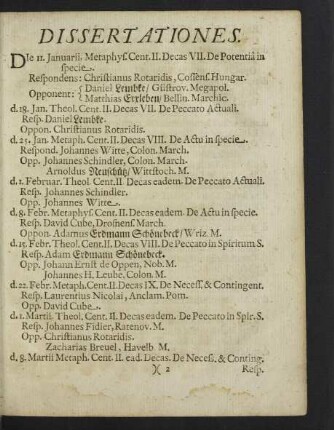 DISSERTATIONES.
DIe 11. Januarii, Metaphys. Cent. II. Decas VII. De Potentiâ in
specie.
Respondens: Christianus Rotaridis, Cossens. Hungar.
Opponent: Daniel Lembke / Güstrov. Megapol.
Matthias Erxleben / Bellin. Marchic.
d. 18. Jan. Theol. Cent. II. Decas VII. De Peccato Actuali.
Resp. Daniel Lembke.
Oppon. Christianus Rotaridis.
d. 25. Jan. Metaph. Cent. II. Decas VIII. De Actu in specie.
Respond. Johannes Witte, Colon. March.
Opp. Johannes Schindler, Colon. March.
Arnoldus Neuschütz / Wittstoch. M.
d. 1. Februar. Theol. Cent. II. Decas eadem. De Peccato Actuali.
Resp. Johannes Schindler.
Opp. Johannes Witte.
d. 8. Febr. Metaphys. Cent. II. Decas eadem. De Actu in specie.
Resp. David Cube, Drosnens. March.
Oppon. Adamus Erdmann Schönebeck / Wriz. M.
d. 15. Febr. Theol. Cent. II. Decas VIII. De Peccato in Spiritum S.
Resp. Adam Erdmann Schönebeck.
Opp. Johann Ernst de Oppen, Nob. M.
Johannes H. Leube. Colon. M.
d. 22. Febr. Metaph. Cent. II. Decas IX. De Necess. & Contingent.
Resp. Laurentius Nicolai, Anclam. Pom.
Opp. David Cube.
d. 1. Martii. Theol. Cent. II. Decas eadem. De Peccato in Spir. S.
Resp. Johannes Fidier, Ratenov. M.
Opp. Christianus Rotaridis.
Zacharias Breuel, Havelb. M.
d. 8. Martii Metaph. Cent. II. ead. Decas. De Necess. & Conting.
)( 2 Resp.